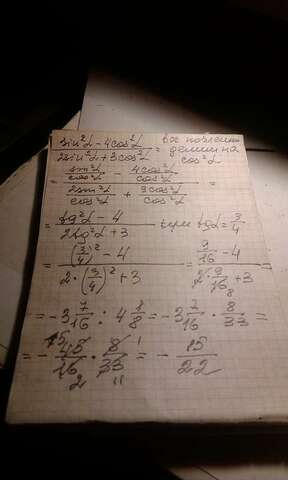 sin²α - 4cos²α / 2sin²α + 3cos²α = все делим на cos²α
= sin²α/cos²α - 4cos²α/cos²α / 2sin²α/cos²α + 3cos²α/cos²α =
= tg²α - 4 / 2tg²α + 3 при tgα = 3/4
= (3/4)² - 4 / 2·(3/4)² + 3 = 9/16 - 4 / 2·9/16 8 + 3 =
= -3 7/16 : 4 1/8 = -3 7/16 · 8/33 =
= - 15 45/16 2 · 8 1/33 11 = - 15/22